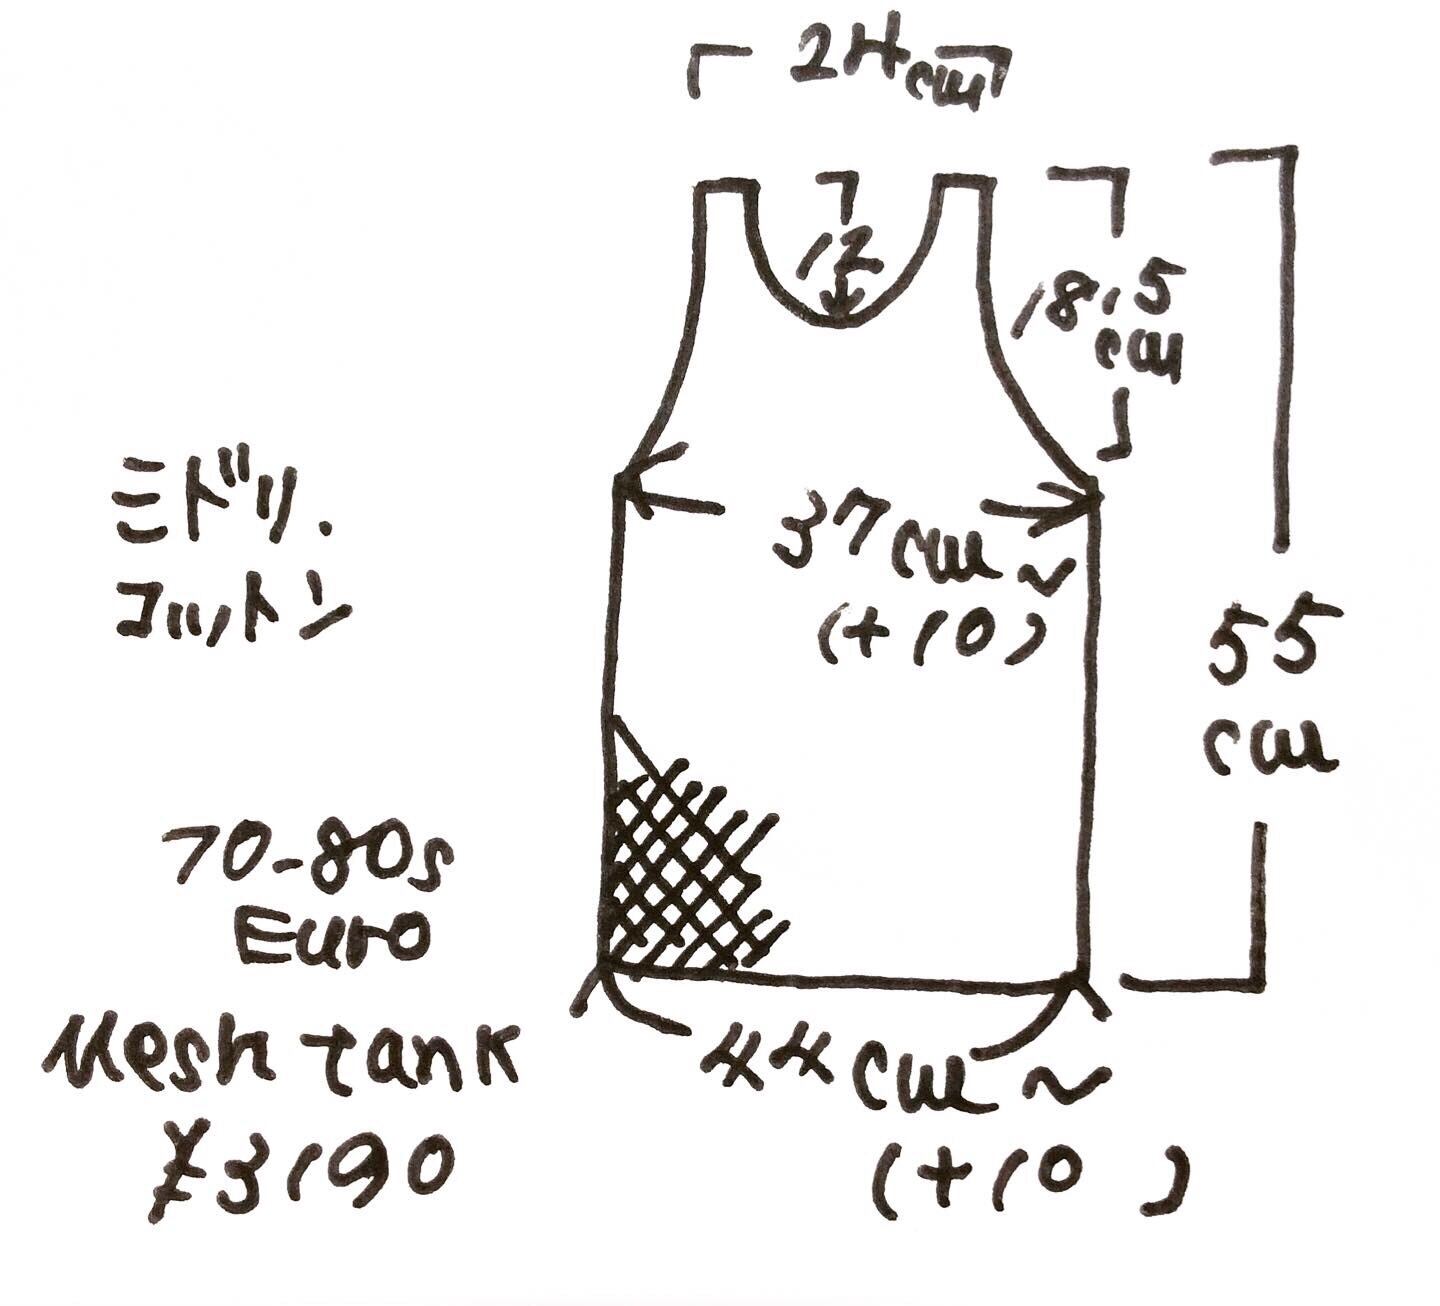 24cm
12
18.5
cm
37cm~
(+10)
55
cm
ミドリ.
コットン
70-80s
Euro
Mesh tank
¥3190
44cm~
(+10)